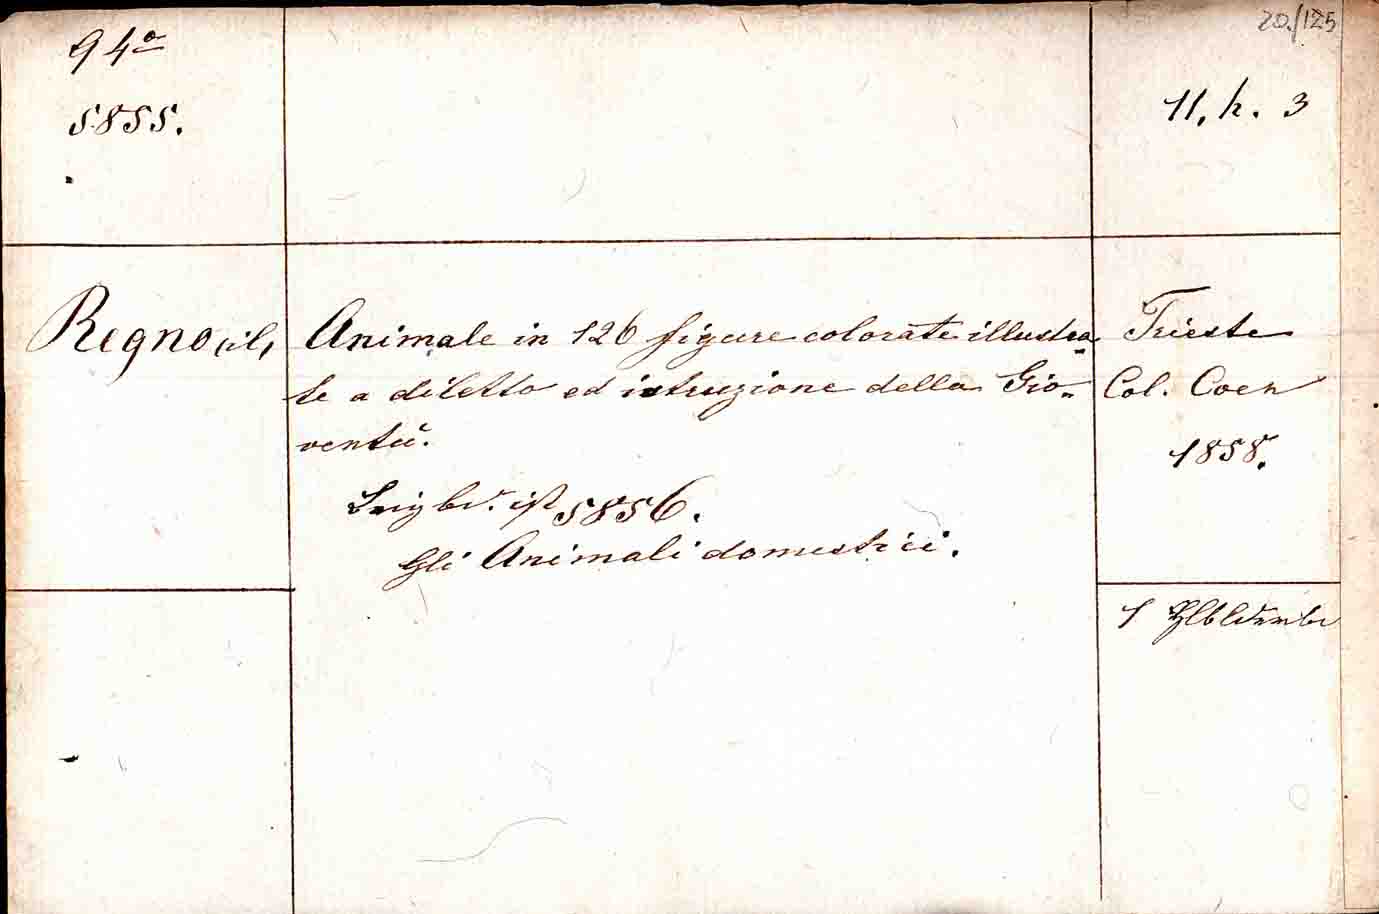 94a
5855.
20./125
11. h. 3
Regno, il, Animale in 126 figure colorate illustra-
te a diletto ed istruzione della Gio-
ventù.
ist 5856.
Gli Animali domestici.
Trieste
Col. Coen
1858.
1